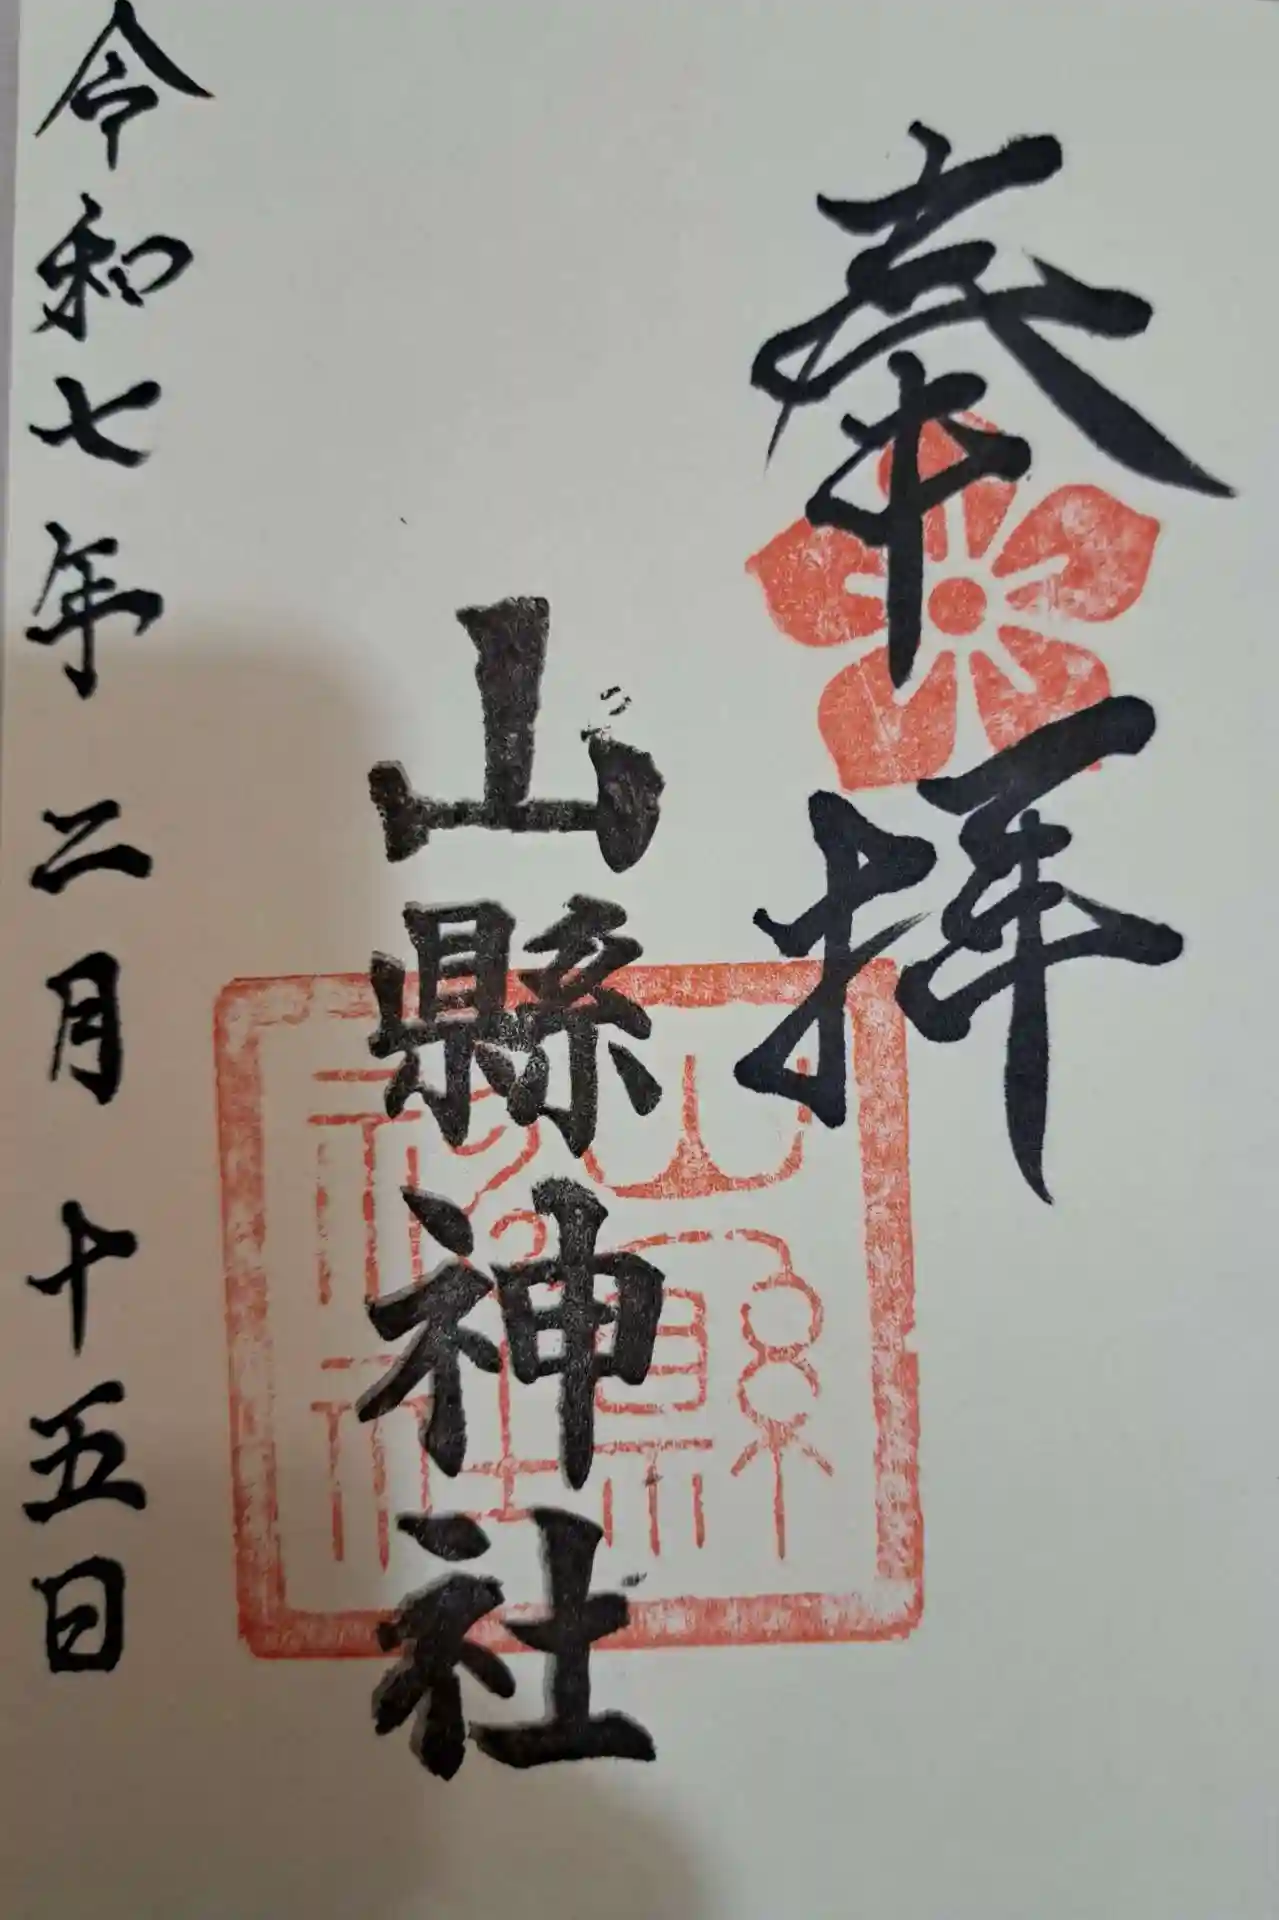 奉拝
山縣神社
山縣神社
令和七年二月十五日